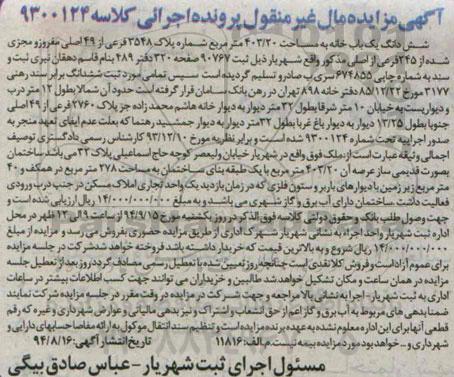 آگهی مزایده مال غیر منقول پرونده اجرائی کلاسه ۹۳۰۰۱۲۴
شش دانگ یک باب خانه به مساحت ۴۰۳/۲۰ متر مربع شماره پلاک ۳۵۴۸ فرعی از ۴۹ اصلی مفروز و مجزی
شده از ۲۴۵ فرعی از اصلی مذکور واقع شهریار ذیل ثبت ۹۰۷۶۷ صفحه ۳۲۰ دفتر ۴۸۹ بنام قاسم دهقان نیری ثبت و
سند به شماره چاپی ۶۷۴۸۵۵ سری ب صادر و تسلیم گردیده است سپس تمامی مورد ثبت ششدانگ برابر سند رهنی
۳۱۷۷ مورخ ۸۵/۱۲/۲۲ دفترخانه ۸۹۸ تهران در رهن بانک سامان قرار گرفته است حدود آن شمالا بطول ۱۲ متر درب
و دیواریست به خیابان ۱۰ متر شرقا بطول ۳۲ متر دیوار به دیوار خانه هاشم محمد زاده جز پلاک ۲۷۶۰ فرعی از ۴۹ اصلی
جنوبا بطول ۱۳/۲۵ دیوار به دیوار باغ غربا بطول ۳۲ متر دیوار به دیوار جمشید رهنما که بعلت عدم ایفای تعهد منجر به
صدور اجراییه تحت شماره ۹۳۰۰۱۲۴ شده است و برابر نظریه مورخ ۹۳/۱۲/۱۰ کارشناس رسمی دادگستری توصیف
اجمالی وثیقه عبارت است از: ملک فوق واقع در شهریار خیابان ولیعصر کوچه حاج اسماعیلی پلاک ۳۲ می باشد ساختمان
بصورت قدیمی ساز عرصه آن ۴۰۳/۲۰ متر مربع با یک طبقه بنای ساختمان به مساحت ۲۷۸ متر مربع در همکف و ۴۰
متر مربع زیر زمین با دیوارهای باربر و ستون فلزی که در زمان بازدید یک واحد تجاری املاک مسکن در جنب درب ورودی
فعالیت داشت ساختمان دارای آب برق و گاز شهری می باشد و به مبلغ ۱۴/۰۰۰/۰۰۰/۰۰۰ ریال ارزیابی شده است و
جهت وصول طلب بانک و حقوق دولتی کلاسه فوق الذکر در روز یکشنبه مورخ ۹۴/۹/۱۵ از ساعت ۹ الی ۱۲ ظهر در محل
اداره ثبت شهریار واحد اجراء به نشانی شهریار شهرک اداری از طریق مزایده حضوری بفروش می رسد و مزایده از مبلغ
۱۴/۰۰۰/۰۰۰/۰۰۰ ریال شروع و به بالاترین قیمت که خریدار داشته باشد فروخته خواهد شد شرکت در جلسه مزایده
برای عموم آزاد است و فروش کلا نقدی است چنانچه روز تعیین شده با تعطیل رسمی مصادف گردد روز بعد از تعطیل جلسه
مزایده در همان ساعت و مکان تشکیل خواهد شد طالبین و خریداران می توانند جهت کسب اطلاعات بیشتر در ساعات
اداری به ثبت شهریار - اجرا به نشانی بالا مراجعه و جهت شرکت در مزایده در وقت مقرر در جلسه مزایده شرکت نمایند
ضمنا بدهی های مربوط به آب برق و گاز اعم از حق انشعاب و اشتراک و نیز بدهی مالیاتی و عوارض شهرداری و غیره که رقم
قطعی آنها برای این اداره معلوم نشده به عهده برنده مزایده است و تنظیم سند انتقال موکول به ارائه مفاصا حسابهای دارایی و
شهرداری و... خواهد بود مورد مزایده بیمه نیست. م الف: ۱۱۸۱۶ تاریخ انتشار آگهی: ۹۴/۸/۱۶
مسئول اجرای ثبت شهریار - عباس صادق بیگی